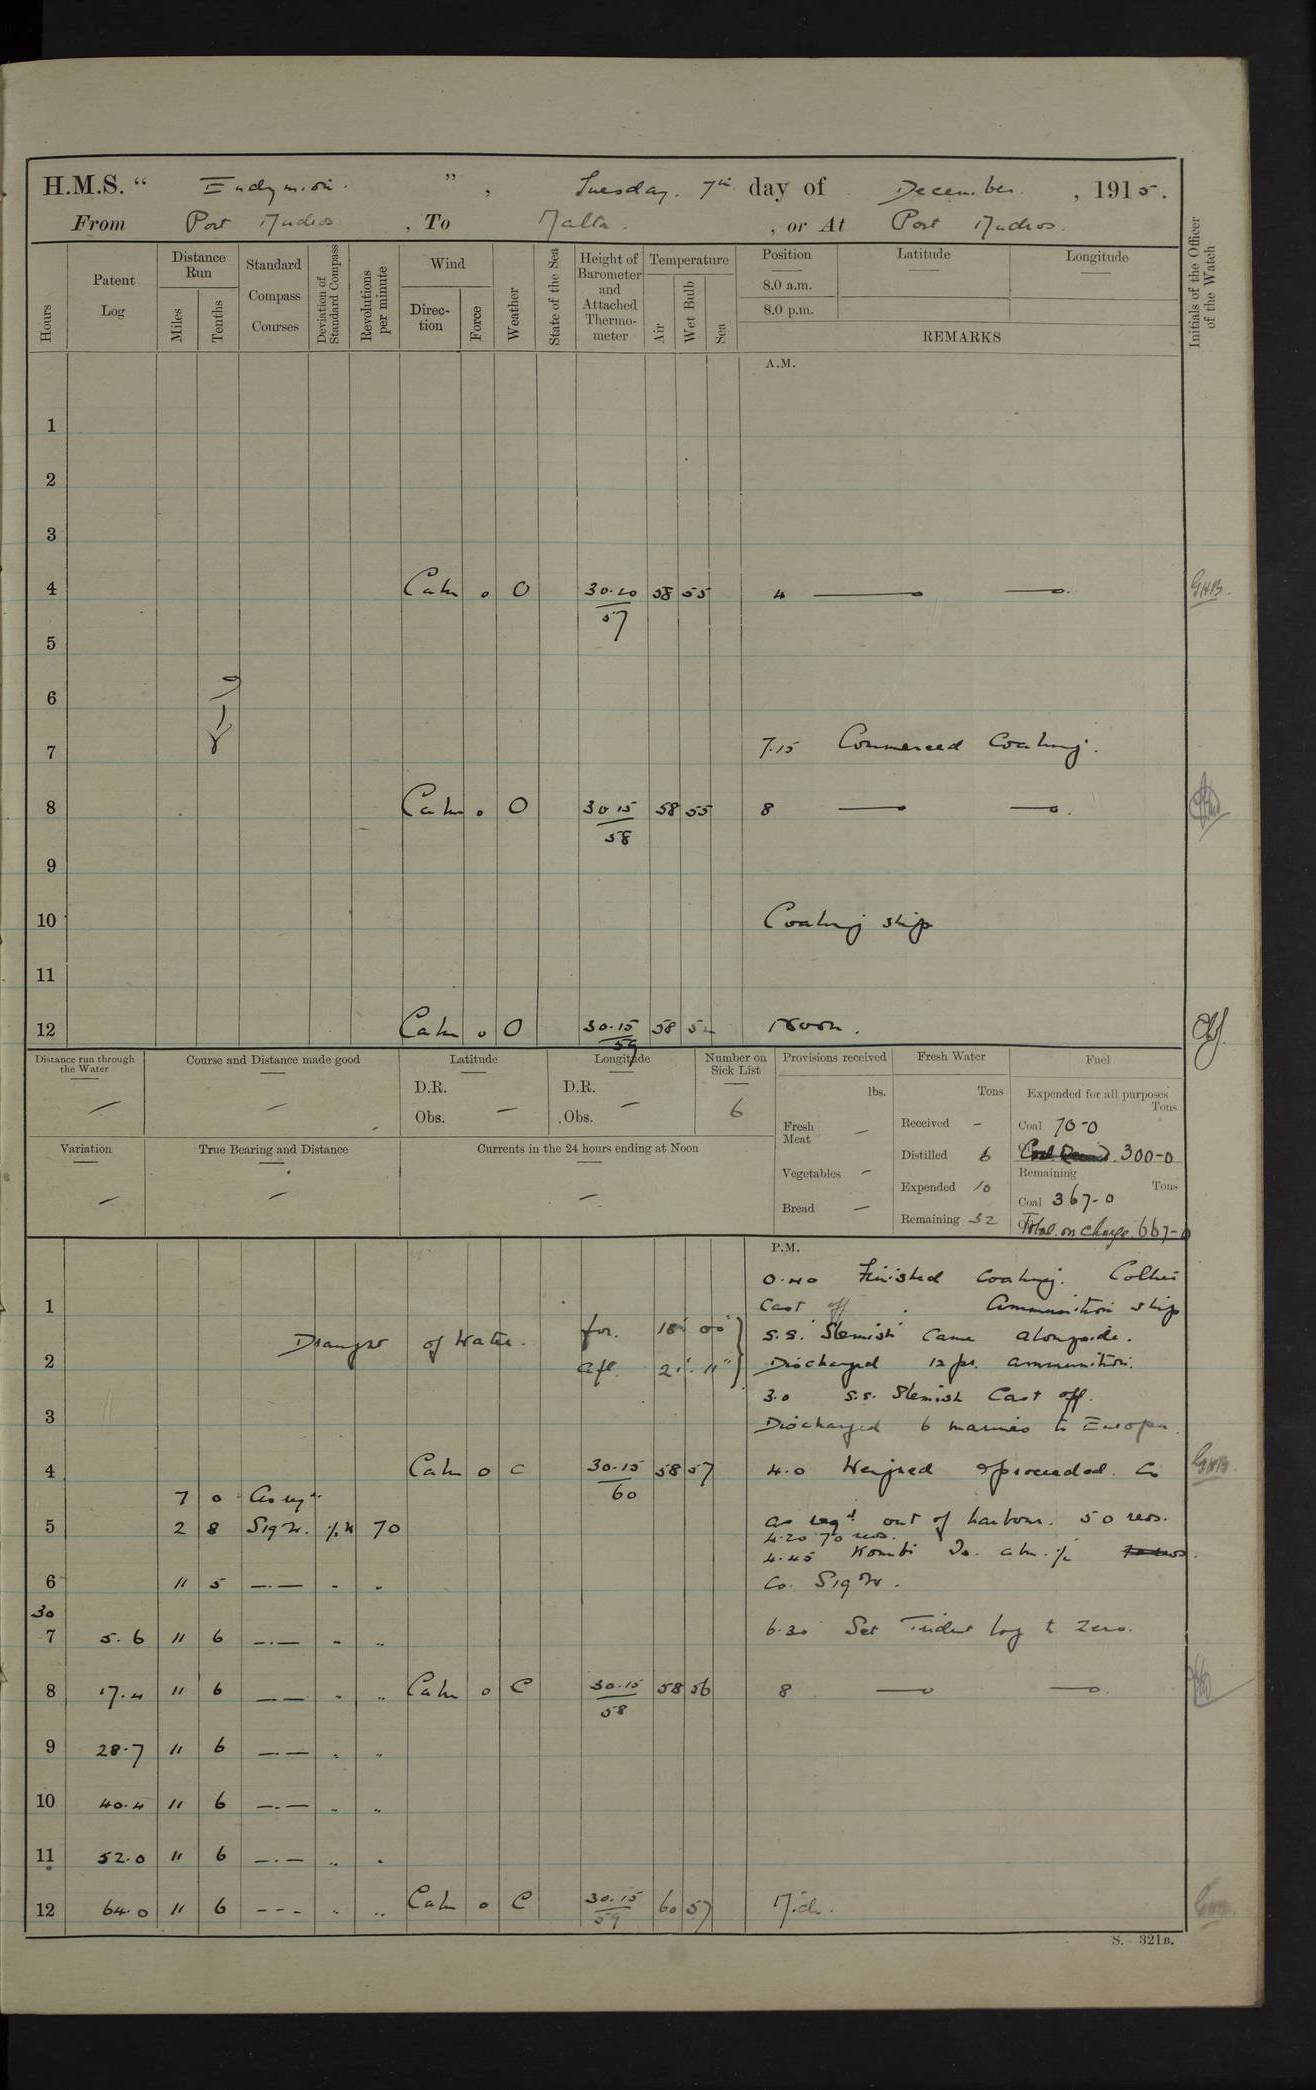 H.M.S. “ Endymion. ” , Tuesday. 7th day of December. , 1915.
From Port Mudros , To Malta. , or At Port Mudros.
Hours
Patent Log
Distance Run
Miles
Tenths
Standard Compass Courses
Deviation of Standard Compass
Revolutions per minute
Wind
Direc-tion
Force
Weather
State of the Sea
Height of Barometer and Attached Thermo-meter
Temperature
Air
Wet Bulb
Sea
Position
8.0 a.m.
8.0 p.m.
Latitude
Longitude
REMARKS
Initials of the Officer of the Watch
A.M.
1
2
3
4 Calm 0 O 30.20 58 55 4 — — GHB.
57
5
6
7 7.15 Commenced Coaling.
8 Calm 0 O 30.15 58 55 8 — —
58
9
10 Coaling ship
11
12 Calm 0 O 30.15 58 Noon.
59
Distance run through the Water
—
Course and Distance made good
—
Latitude
D.R.
Obs. —
Longitude
D.R.
Obs. —
Number on Sick List
6
Provisions received
lbs.
Fresh Meat —
Vegetables —
Bread —
Fresh Water
Tons
Received -
Distilled 6
Expended 10
Remaining 32
Fuel
Expended for all purposes
Tons
Coal 70-0
300-0
Remaining
Tons
Coal 367-0
Total on charge 667-0
Variation
—
True Bearing and Distance
—
Currents in the 24 hours ending at Noon
—
P.M.
0.40 Finished Coaling. Collier
1 Cast off. Ammunition ship
Draught of Water. for. 18' 00" s.s. Slemish came alongside.
2 aft. 21' 11" Discharged 12 pr. ammunition.
3.0 s.s. Slemish Cast off.
3 Discharged 6 marines to Europa.
4 Calm 0 C 30.15 58 57 4.0 Weighed & proceeded. Co GHB.
60
7 0 As reqd.
5 2 8 70 as reqd out of harbour. 50 revs.
4.20 70 revs.
4.45 Kombi
6 " 5 —.— " " Co.
30
7 5.6 " 6 —.— " " 6.30 Set Trident log to Zero.
8 17.4 " 6 —— " " Calm 0 C 30.15 58 56 8 — —
58
9 28.7 " 6 —.— " "
10 40.4 " 6 —.— " "
11 52.0 " 6 —.— " "
12 64.0 " 6 --- " " Calm 0 C 30.15 60 57 Mid.
59
S. 321B.